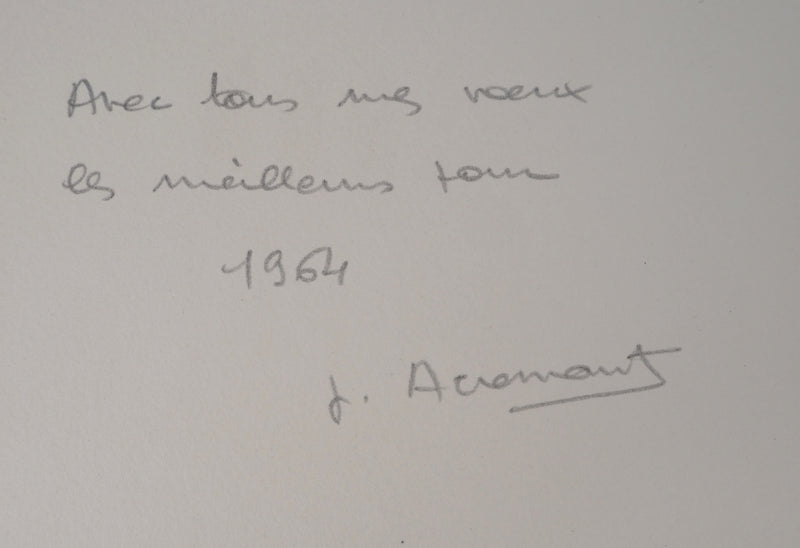 Avec tous mes vœux
les meilleurs pour
1964
J. Acremant